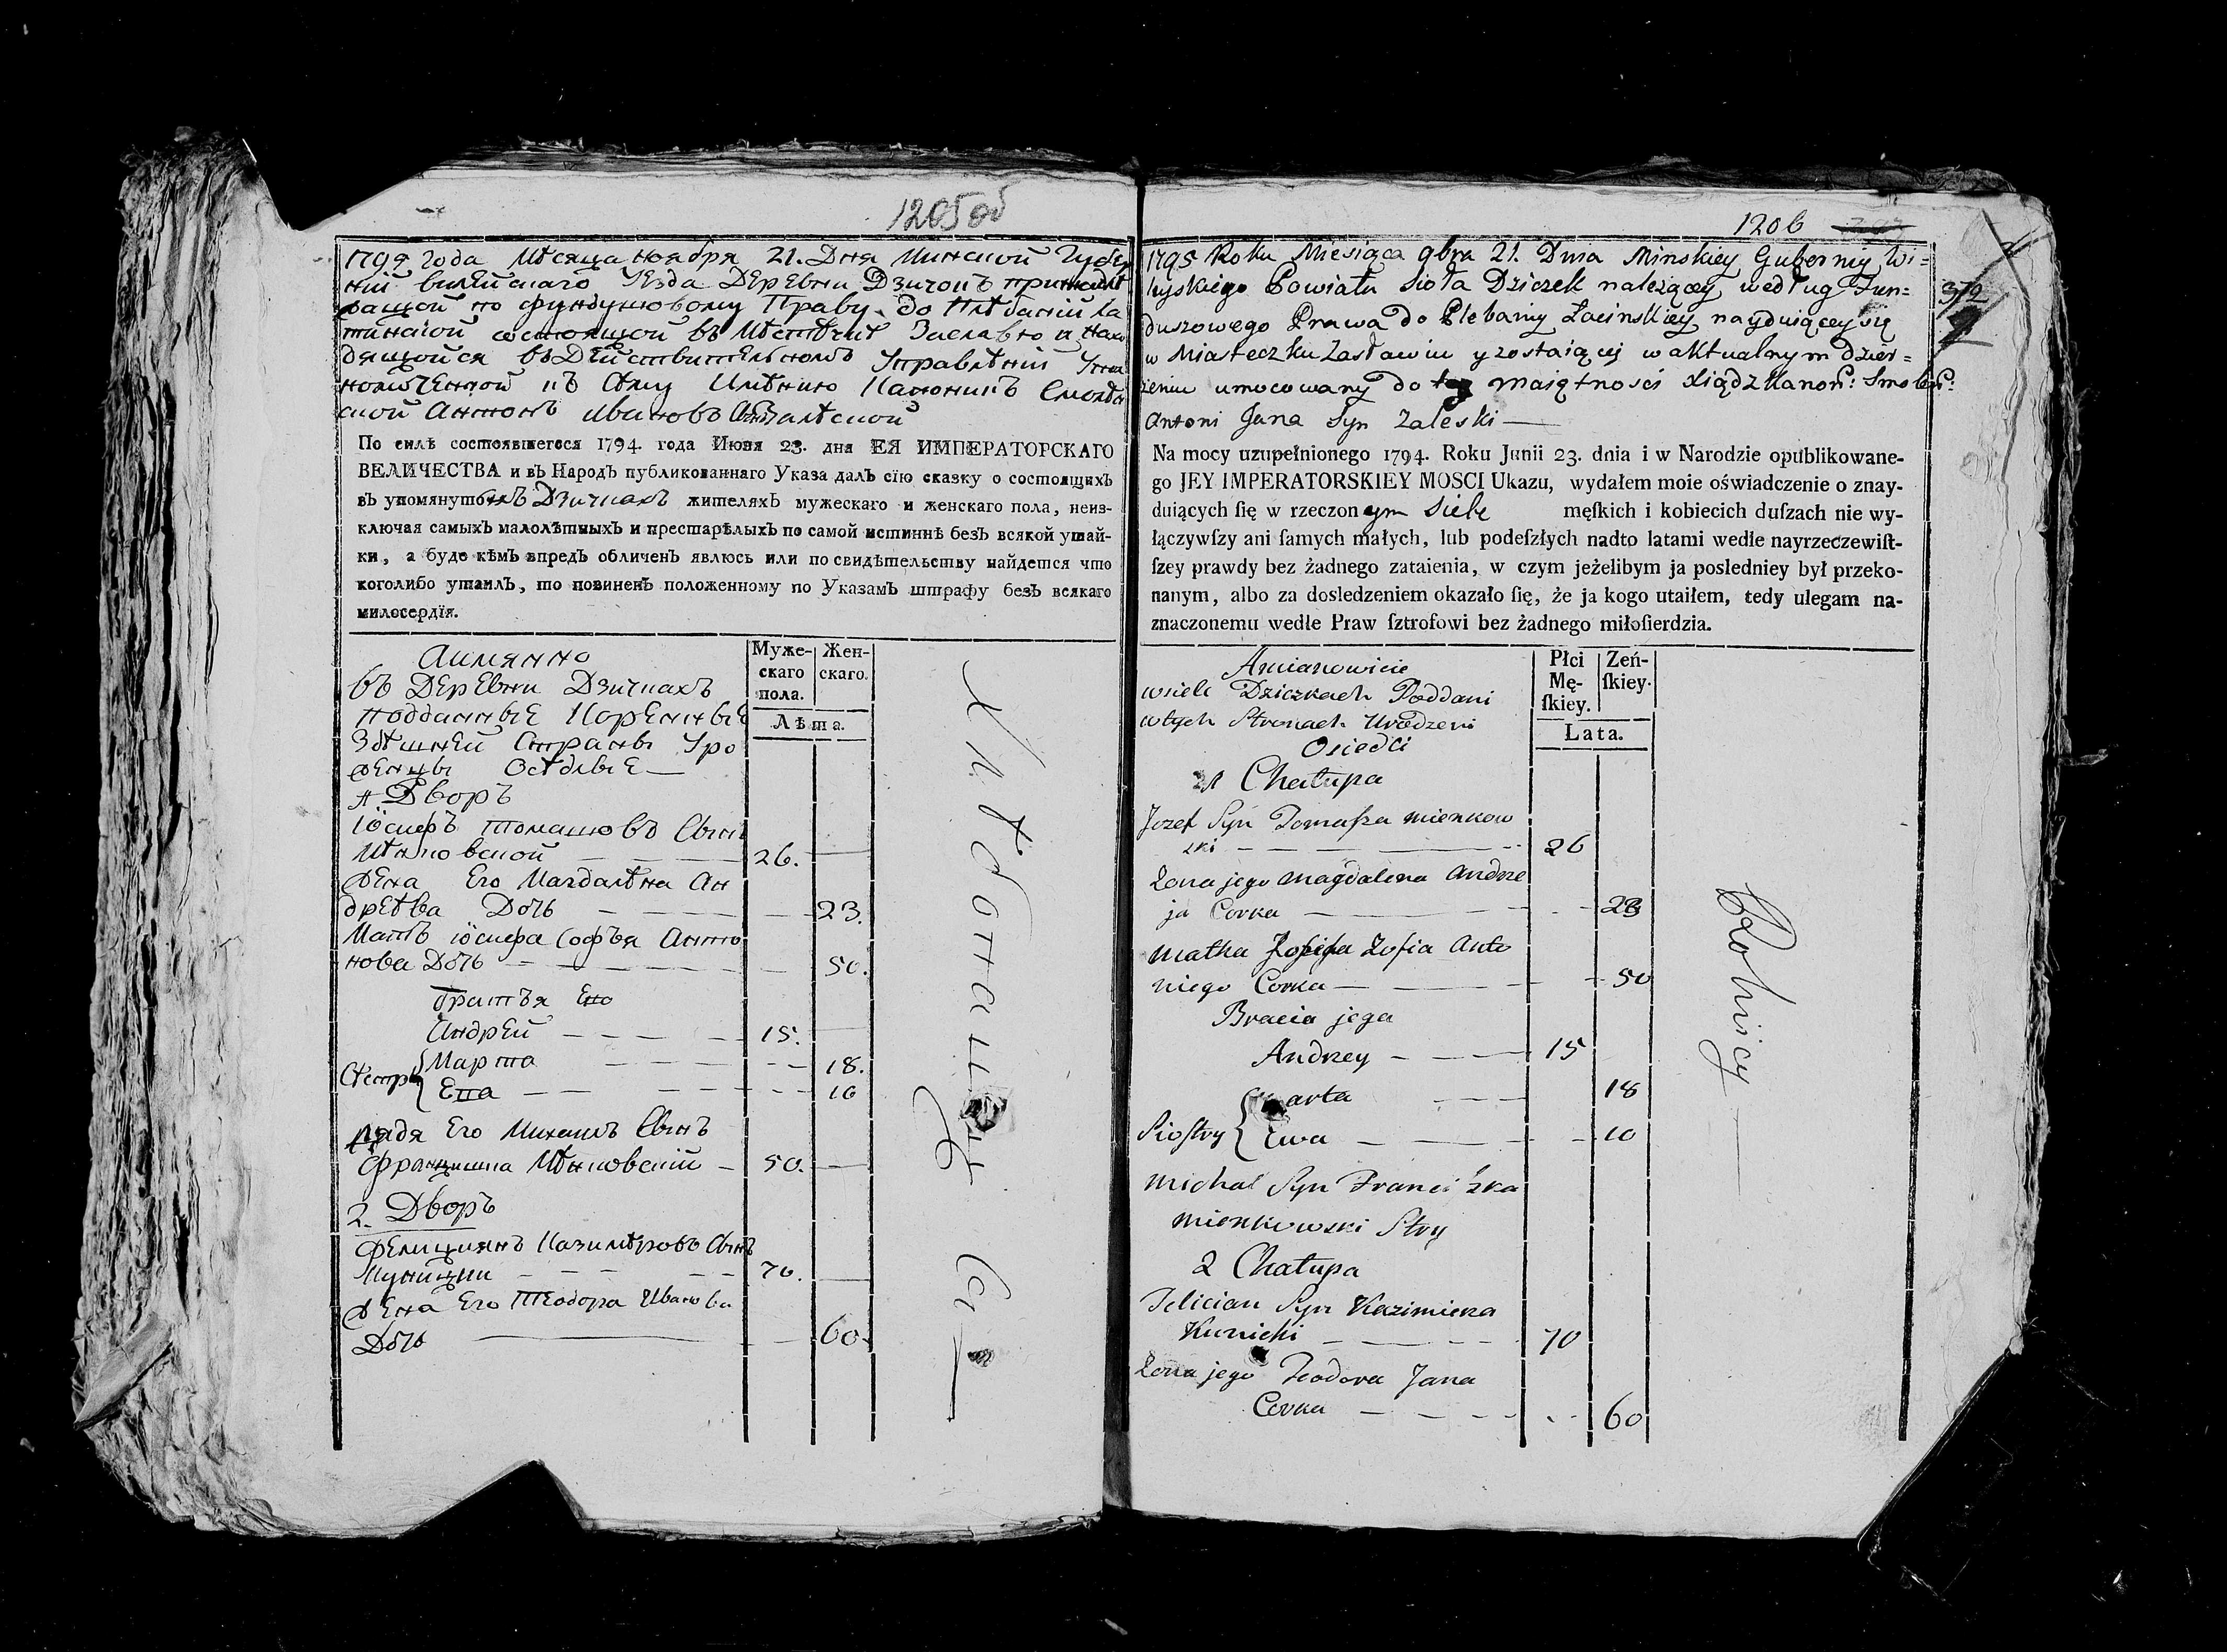 1205 об
1795 года Мѣсяца Ноября 21. Дня Минской Губер
ніи Вилейскаго Уезда Деревни Дзичокъ принадлѣ
жащой по фундушовому Праву до Плѣбаніи Ла
тинской состоящой въ Мѣстечкѣ Заславлю и нахо
дящойся въ Дѣйствительномъ Управлѣніи Упол
номоченной къ сему Имѣнию Каноникъ Смолен
ской Антонъ Ивановъ Сынъ Залѣской
По силѣ состоявшегося 1794. года Июня 23. дня ЕЯ ИМПЕРАТОРСКАГО
ВЕЛИЧЕСТВА и въ Народъ публикованнаго Указа далъ сїю сказку о состоящихъ
въ упомянутомъ Дзичкахъ жителяхъ мужескаго и женскаго пола, неиз-
ключая самыхъ малолѣтныхъ и престарѣлыхъ по самой истиннѣ безъ всякой утай-
ки, а буде кѣмъ впредъ обличенъ явлюсь или по свидѣтельству найдется что
коголибо утаилъ, то повиненъ положенному по Указамъ штрафу безъ всякаго
милосердїя.
Муже-
скаго
пола.
Жен-
скаго.
Лѣта.
Аимянно
въ Деревни Дзичкахъ
подданные Коренные
Здѣшней Страны Уро
женцы Осѣдлые —
1. Дворъ
Іосифъ Томашовъ Сынъ
Мѣнковской — 26. —
Жена Его Магдалѣна Ан
дреѣва Дочь — 23.
Мать Іосифа Софья Анто
нова Дочь — 50.
братья Его
Андрей — 15. —
Сѣстры { Марта — 18.
Ева — 10
дядя Его Михаилъ Сынъ
Францишка Мѣнковскій — 50. —
2. Дворъ
Фелициянъ Казимѣровъ Сынъ
Куницки — 70. —
Жена Его Теодора Иванова
Дочь — 60.
1206
1795 Roku Miesiąca 9bra 21. Dnia Minskiey Gubernij Wi=
leyskiego Powiatu Sioła Dziczek należącey według Fun=
duszowego Prawa do Plebanij Łacinskiey nayduiącey się
w Miasteczku Zasławiu y zostaiącej w aktualnym dzier=
żeniu umocowany do tey maiętnosci Xiądz Kanon: Smoleń:
Antoni Jana Syn Zaleski —
372
Na mocy uzupełnionego 1794. Roku Junii 23. dnia i w Narodzie opublikowane-
go JEY IMPERATORSKIEY MOSCI Ukazu, wydałem moie oświadczenie o znay-
duiących ſię w rzeczonym Siele męſkich i kobiecich duſzach nie wy-
łączywſzy ani ſamych małych, lub podeſzłych nadto latami wedle nayrzeczewiſt-
ſzey prawdy bez żadnego zataienia, w czym jeżelibym ja posledniey był przeko-
nanym, albo za dosledzeniem okazało ſię, że ja kogo utaiłem, tedy ulegam na-
znaczonemu wedle Praw ſztrofowi bez żadnego miłoſierdzia.
Płci
Mę-
ſkiey.
Zeń-
ſkiey.
Lata.
Amianowicie
w siele Dziczkach Poddani
w tych Stronach Urodzeni
Osiedli
1 Chałupa
Jozef Syn Tomaſza Mienkow
ski — 26
Żona jego Magdalena Andrze
ja Corka — 23
Matka Jozefa Zofia Anto
niego Corka — 50
Bracia jego
Andrzey — 15
Siostry { Marta — 18
Ewa — 10
Michał Syn Franciszka
Mienkowski Stry
2 Chałupa
Felician Syn Kazimierza
Kunicki — 70
Żona jego Teodora Jana
Corka — 60